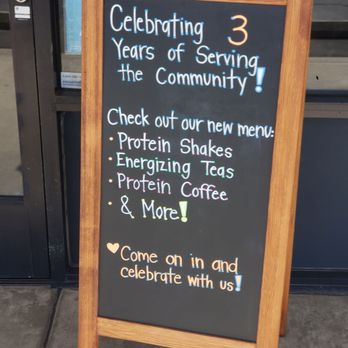 Celebrating 3
Years of Serving
the Community!
Check out our new menu:
· Protein Shakes
· Energizing Teas
· Protein Coffee
· & More!
♥Come on in and
celebrate with us!